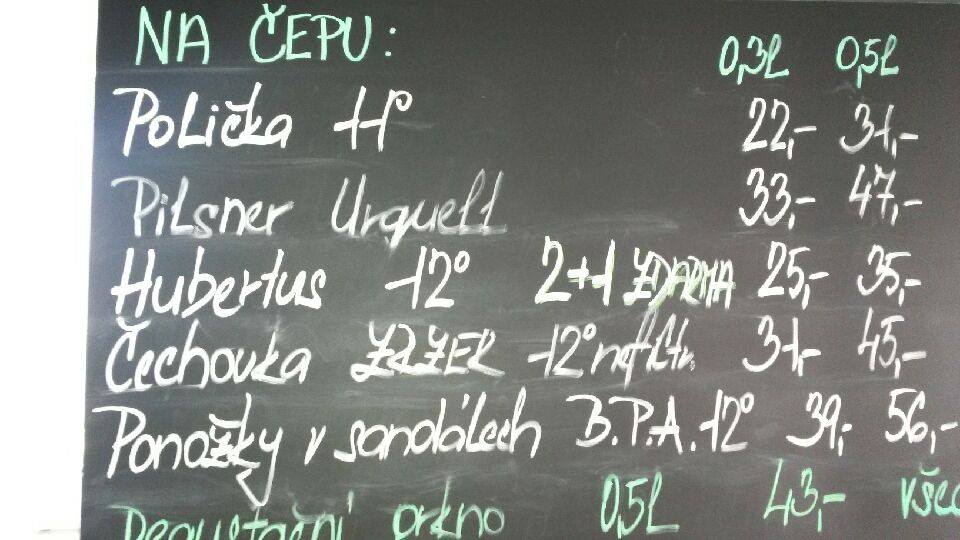 NA ČEPU: 0,3l 0,5l
Polička 11° 22,- 31,-
Pilsner Urquell 33,- 47,-
Hubertus 12° 2+1 ZDARMA 25,- 35,-
Čechovka ZÁZEL 12° nefiltr. 31,- 45,-
Ponožky v sandálech B.P.A. 12° 39,- 56,-
Degustační prkno 0,5l 43,-